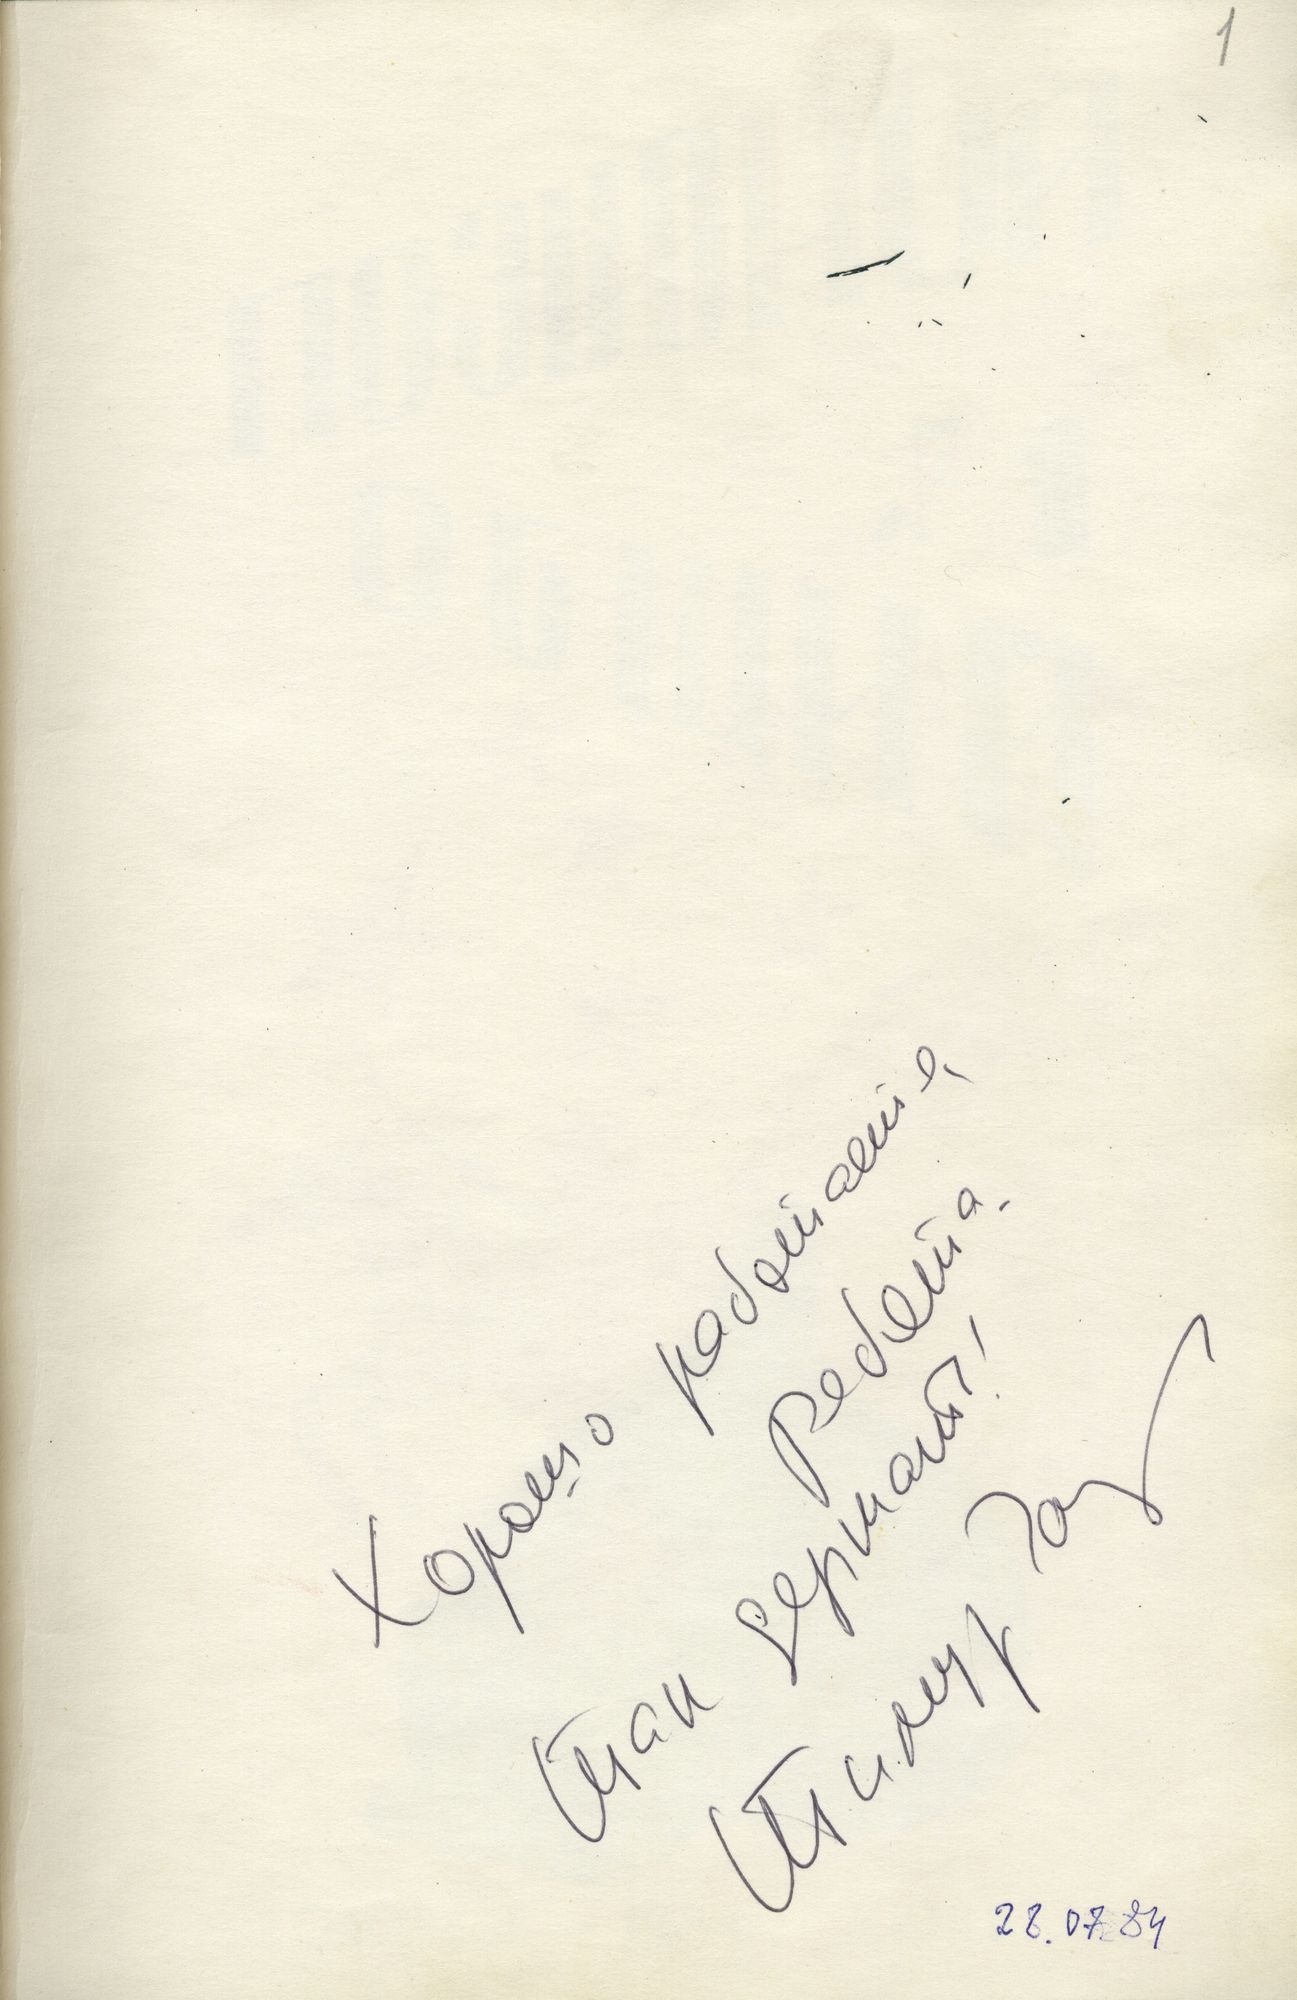 1
Хорошо работаете,
Ребята.
Так держать!
28.07.84